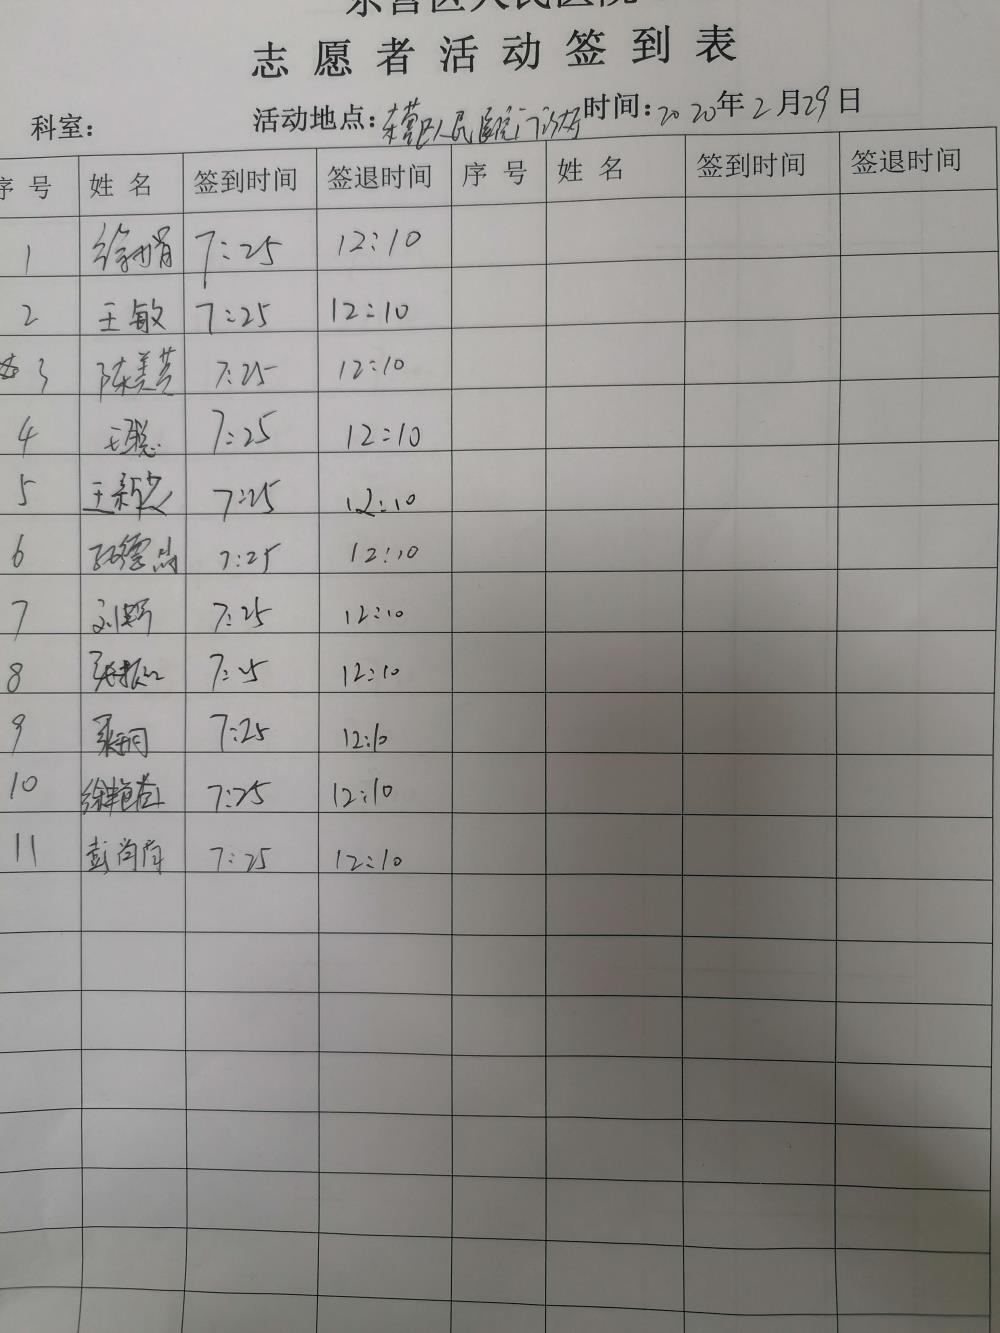 东营区人民医院
志愿者活动签到表
科室： 活动地点：东营区人民医院门诊 时间：2020年2月29日
序号 姓名 签到时间 签退时间 序号 姓名 签到时间 签退时间
1 7:25 12:10
2 王敏 7:25 12:10
3 陈美芸 7:25 12:10
4 王聪 7:25 12:10
5 王新 7:25 12:10
6 7:25 12:10
7 刘 7:25 12:10
8 张振 7:25 12:10
9 7:25 12:10
10 徐艳 7:25 12:10
11 彭 7:25 12:10